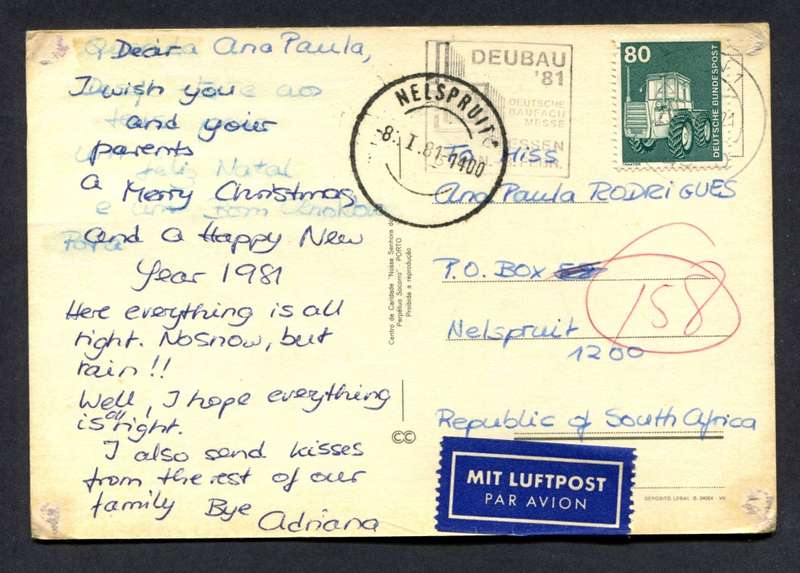 Dear Ana Paula,
I wish you
and your
parents
a Merry Christmas
and a Happy New
Year 1981
Here everything is all
right. No snow, but
rain!!
Well, I hope everything
is all right.
I also send kisses
from the rest of our
family Bye
Adriana
feliz Natal
Para
DEUBAU
'81
DEUTSCHE
BAUFACH
MESSE
ESSEN
NELSPRUIT
-8. I. 81-1400
80
DEUTSCHE BUNDESPOST
To Miss
Ana Paula RODRIGUES
P.O. BOX
158
Nelspruit
1200
Republic of South Africa
Centro de Caridade "Nossa Senhora do
Perpétuo Socorro" - PORTO
Proibida a reprodução
CC
MIT LUFTPOST
PAR AVION
DEPÓSITO LEGAL B. 24004 - VII